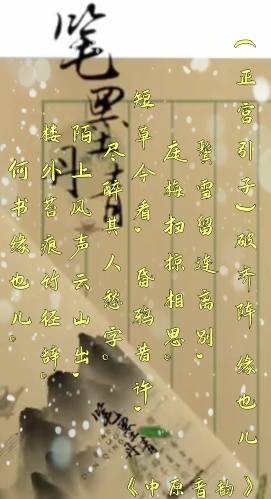 (正宫引子)破齐阵缘也儿
鬓雪留连离别,
庭梅扫掠相思。
短草今看,昏鸦昔许,
尽醉其人愁字。
陌上风声云山出,
楼外苔痕竹径辞。
何书缘也儿。
《中原音韵》
笔墨丹青